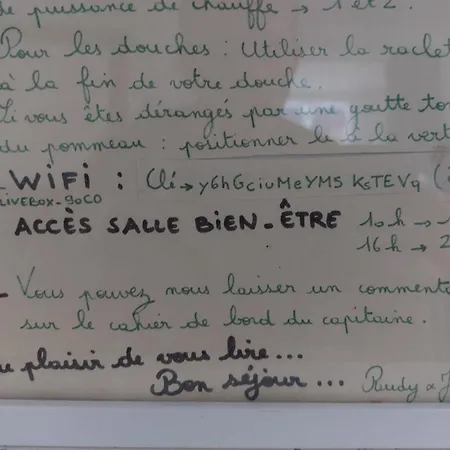 de puissance de chauffe → 1 et 2.
Pour les douches : Utiliser la raclet
à la fin de votre douche.
Si vous êtes dérangés par une goutte to
du pommeau : positionner le à la vert
- WiFi : Clé → y6hGciuMeYM5 KsTEV9 (
LIVEBOX-90C0
ACCÈS SALLE BiEN-ÊTRE 10h → 1
16h → 2
- Vous pouvez nous laisser un commenta
sur le cahier de bord du capitaine.
u plaisir de vous lire...
Bon séjour... Rudy & J